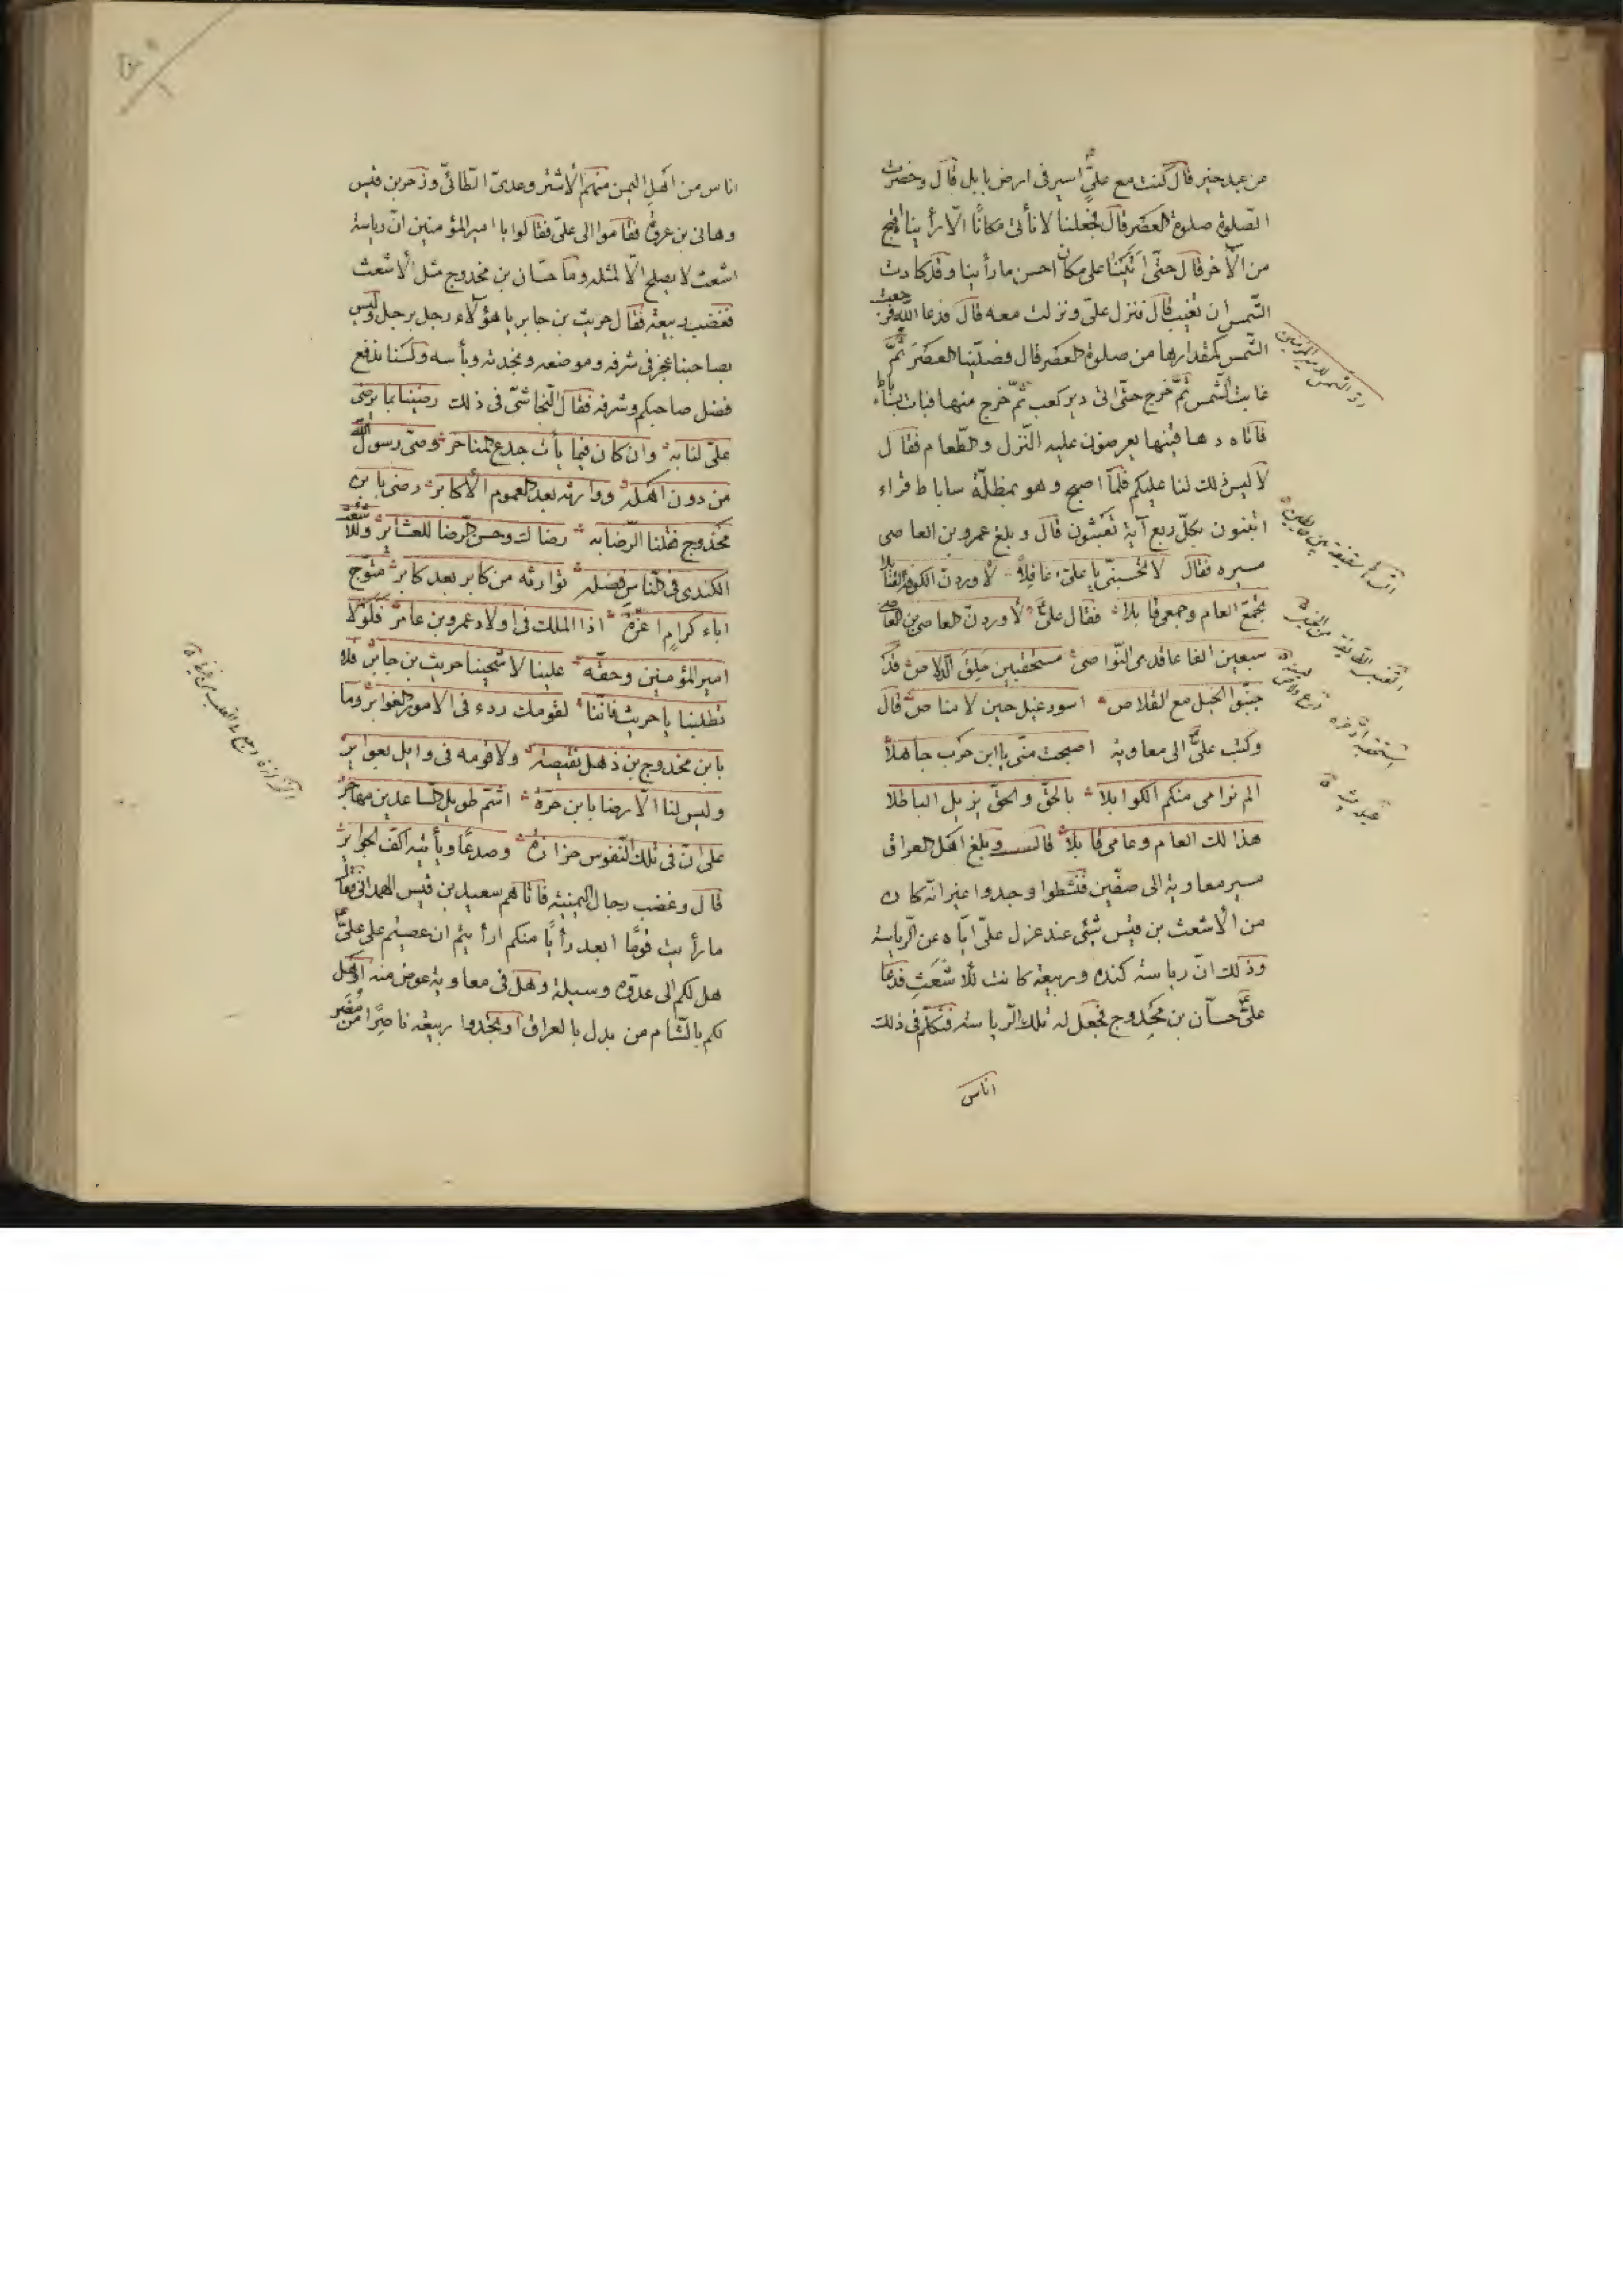 عن عبد خير قال كنت مع علىٍّ اسير فى ارض بابل قال وحضرت
الصّلوة صلوة العصر قال فجعلنا لا نأتى مكانًا الّا رأيناه اقبح
من الآخر قال حتّى اتينا على مكان احسن ما رأينا وقد كادت
الشّمس ان تغيب قال فنزل علىّ ونزلت معه قال فدعا اللّه فرجعت
الشّمس كمقدارها من صلوة العصر قال فصلّينا العصر ثمّ
غابت الشّمس ثمّ خرج حتّى اتى دير كعب ثمّ خرج منها فبات بساباط
فاتاه دهاقينها يعرضون عليه النّزل والطّعام فقال
لا ليس ذلك لنا عليكم فلمّا اصبح وهو بمظلمة ساباط قراء
اتبنون بكلّ ريع آية تعبثون قال وبلغ عمرو بن العاصى
مسيره فقال لا تحسبنّى يا علىّ غافلاً لاوردنّ الكوفة القنابلا
بجمعى العام وجمعى قابلا فقال علىٌّ لاوردنّ العاصى بن العاصى
سبعين الفا عاقدى النّواصى مستحقبين حلق الدّلاص قد
جنّبوا الخيل مع القلاص اسود غيل حين لا مناص قال
وكتب علىٌّ الى معاوية اصبحت منّى يا ابن حرب جاهلاً
ان لم نرامى منكم الكواهلا بالحقّ والحقّ يزيل الباطلا
هذا لك العام وعامى قابلا قال وبلغ اهل العراق
مسير معاوية الى صفّين فنشطوا وجدوا غير انّه كان
من الأشعث بن قيس شئى عند عزل علىّ ايّاه عن الرّياسة
وذلك انّ رياسة كنده وربيعة كانت للأشعث فدعا
علىٌّ حسّان بن مخدوج فجعل له تلك الرّياسة فتكلّم فى ذلك
اناس
ردّ الشمس لامير المؤمنين
اناس من اهل اليمن منهم الأشتر وعدىّ الطائىّ وزحر بن قيس
وهانى بن عروة فقاموا الى علىّ فقالوا يا امير المؤمنين انّ رياسة
اشعث لا يصلح الّا لمثله وما حسّان بن مخدوج مثل الأشعث
فغضب ربيعة فقال حريث بن جابر يا هؤلاء رجل برجل وليس
بصاحبنا عجز فى شرفه وموضعه ونجدته وبأسه ولسنا ندفع
فضل صاحبكم وشرفه فقال النّجاشىّ فى ذلك رضينا بما يرضى
علىّ لنا به وان كان فيما يأت جدع المناخر وصىّ رسول اللّه
من دون اهله ووارثه بعد العموم الأكابر رضى بابن
مخدوج فقلنا الرّضا به رضاك وحسن الرّضا للعشائر وللأشعث
الكندى فى النّاس فضله توارثه من كابر بعد كابر متوّج
اباء كرامٍ اعزّة اذا الملك فى اولاد عمرو بن عامر فلولا
امير المؤمنين وحقّه علينا لاشجينا حريث بن جابر فلا
تطلبنا يا حريث فانّنا لقومك ردء فى الامور الغوابر وما
بابن مخدوج بن ذهل نقيصة ولا قومه فى وايل بعواير
وليس لنا الّا الرضا بابن حرّة اشمّ طويل السّاعدين مهاجر
على انّ فى تلك النّفوس حزازة وصدعًا ويأتيه اكفّ الجوابر
قال وغضب رجال اليمنيّة فاتاهم سعيد بن قيس الهمدانى فقال
ما رأيت قومًا ابعد رأيًا منكم ارأيتم ان عصيتم على علىٍّ
هل لكم الى عدوّه وسيلة وهل فى معاوية عوض منه او هل
لكم بالشّام من بدل بالعراق او تجدوا ربيعة ناصرًا من مضر